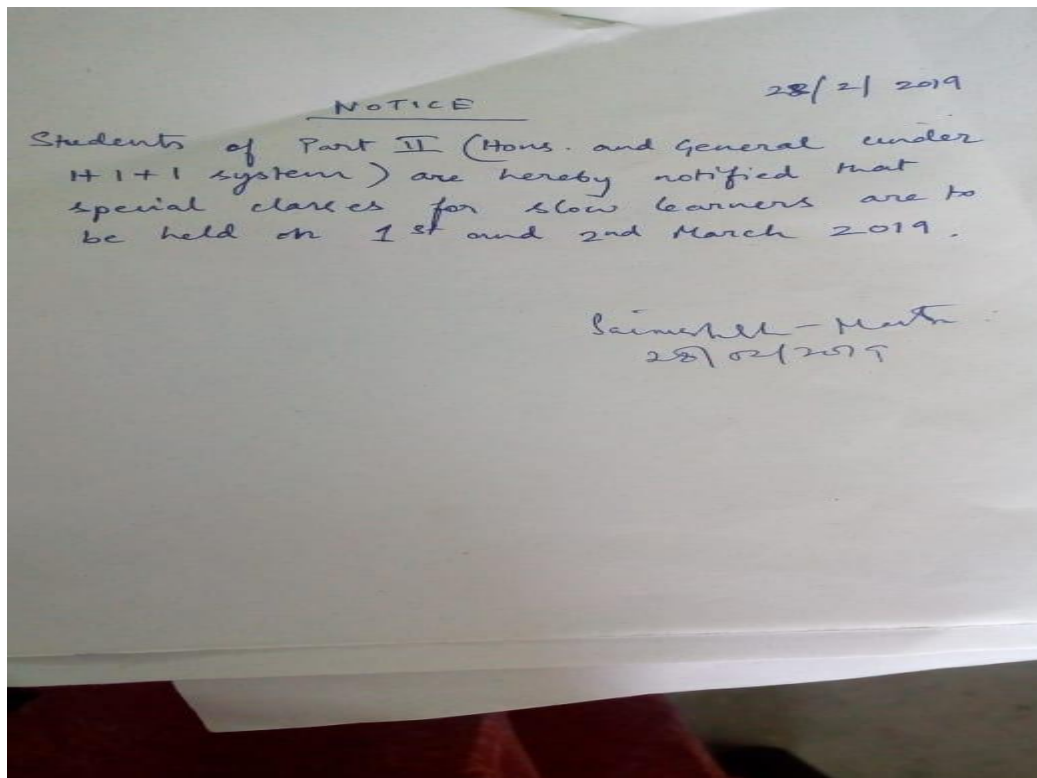 28/2/2019
NOTICE
Students of Part II (Hons. and General under
1+1+1 system) are hereby notified that
special classes for slow learners are to
be held on 1st and 2nd March 2019.
28/02/2019